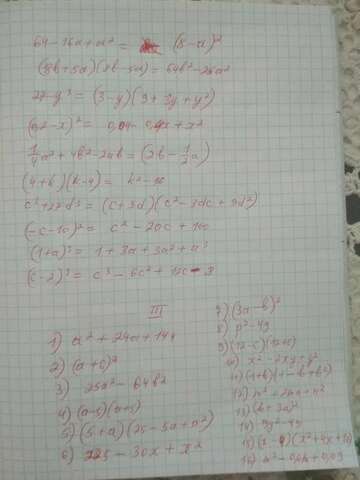 64 - 16a + a² = (8 - a)²
(8b + 5a)(8b - 5a) = 64b² - 25a²
27 - y³ = (3 - y)(9 + 3y + y²)
(0,2 - x)² = 0,04 - 0,4x + x²
1/4 a² + 4b² - 2ab = (2b - 1/2 a)
(4 + k)(k - 4) = k² - 16
c³ + 27d³ = (c + 3d)(c² - 3dc + 9d²)
(-c - 10)² = c² - 20c + 100
(1 + a)³ = 1 + 3a + 3a² + a³
(c - 2)³ = c³ - 6c² + 12c - 8
III
1) a² + 24a + 144
2) (a + c)²
3) 25a² - 64b²
4) (a - 5)(a + 5)
5) (5 + a)(25 - 5a + a²)
6) 225 - 30x + x²
7) (3a - b)²
8) p² - 49
9) (12 - c)(12 + c)
10) x² - 2xy + y²
11) (1 + b)(1 - b + b²)
12)
13) (b + 3a)²
14)
15) (x - 4)(x² + 4x + 16)
16)